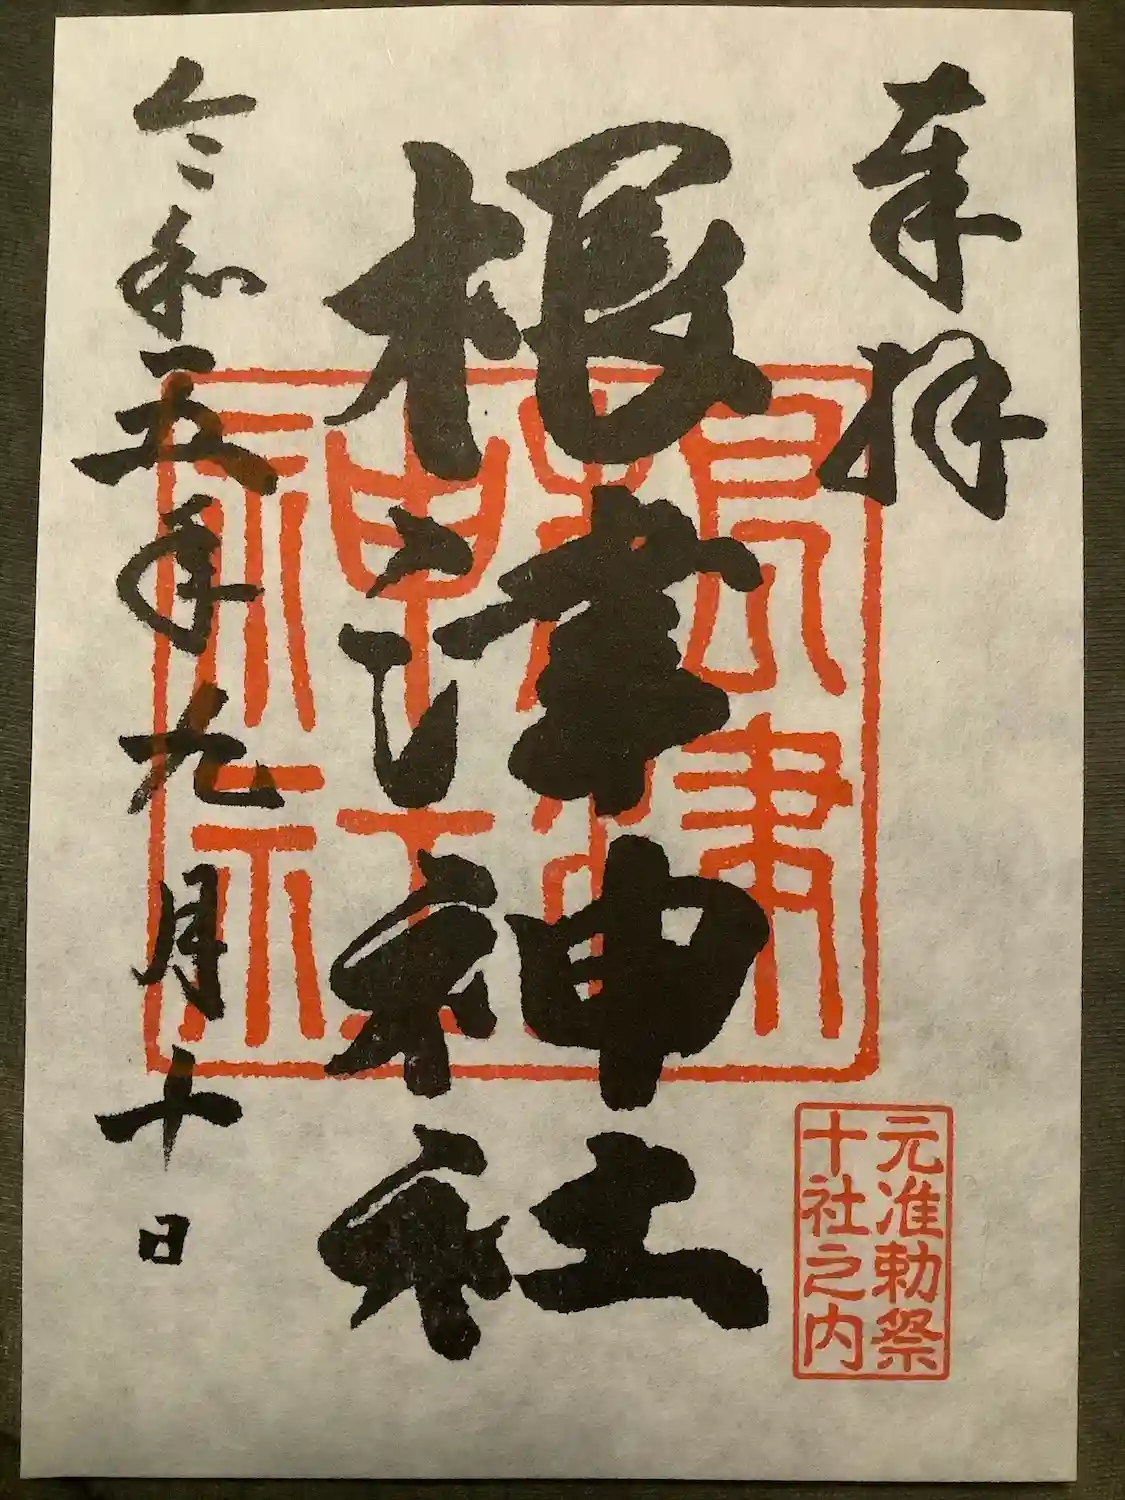 奉拝
根津神社
令和五年九月十日
元准勅祭
十社之内